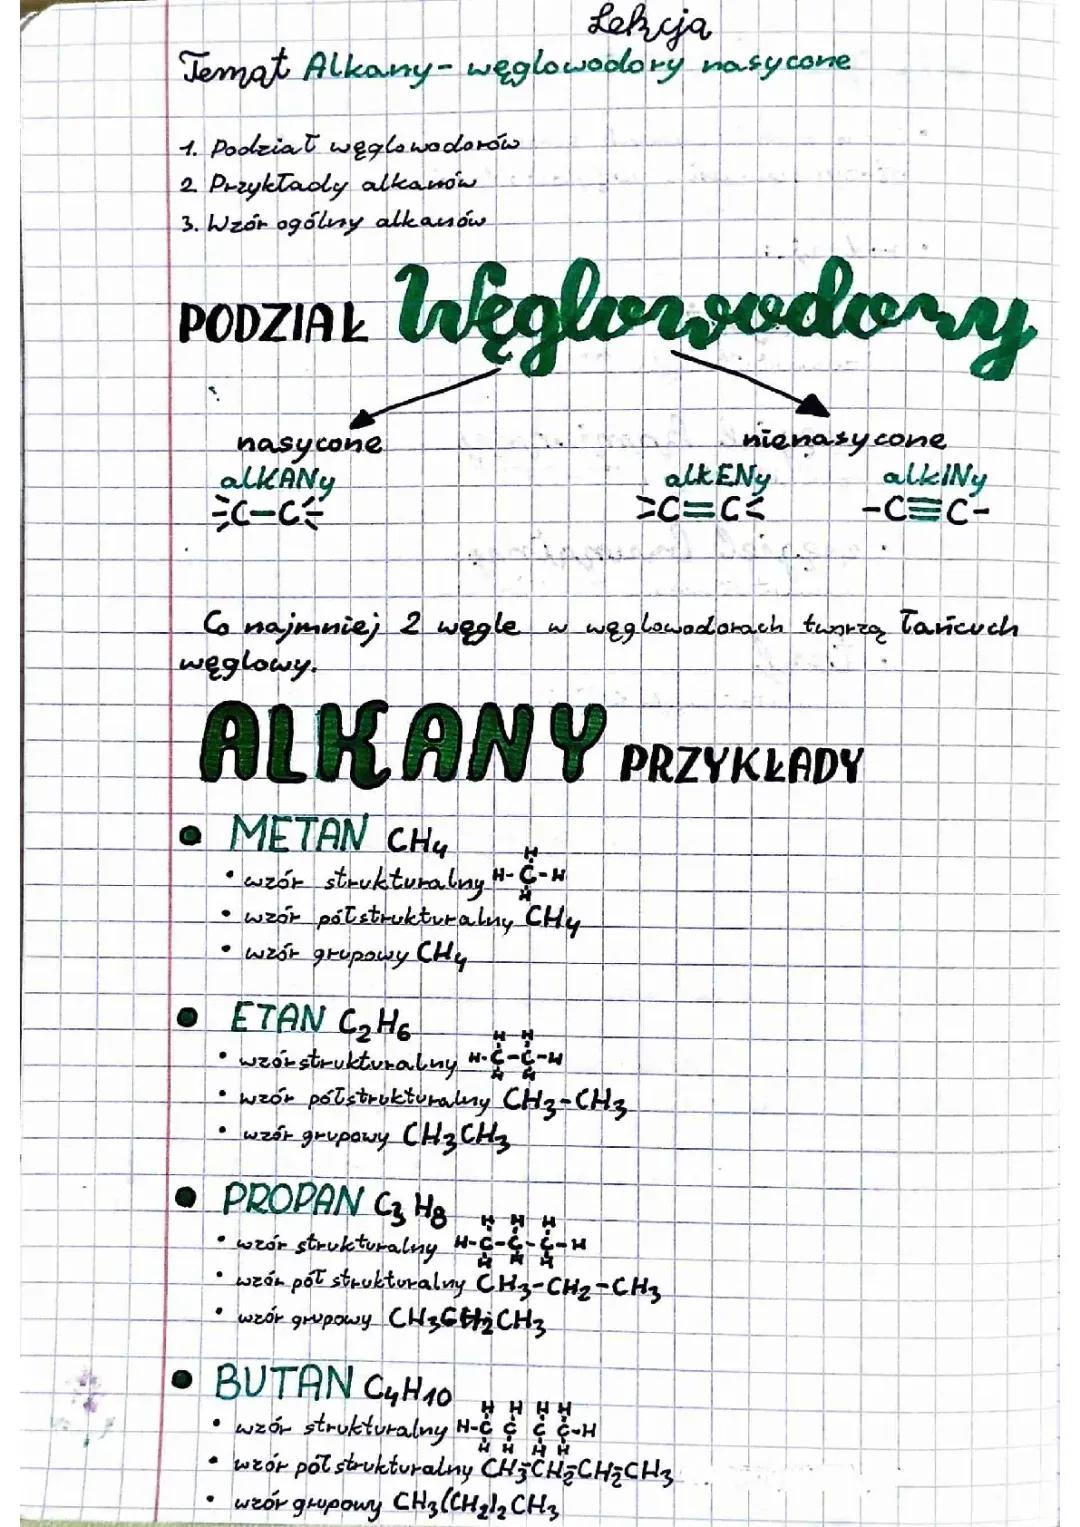 Lekcja
Temat Alkany - węglowodory nasycone
1. Podział węglowodorów
2 Przykłady alkanów
3. Wzór ogólny alkanów
PODZIAŁ Węglowodory
nasycone nienasycone
alKANy alkENy alkINy
>C-C< >C=C< -C≡C-
Co najmniej 2 węgle w węglowodorach tworzą łańcuch
węglowy.
ALKANY PRZYKŁADY
• METAN CH4
H
• wzór strukturalny H-C-H
H
• wzór półstrukturalny CH4
• wzór grupowy CH4
• ETAN C2H6
H H
• wzór strukturalny H-C-C-H
H H
• wzór półstrukturalny CH3-CH3
• wzór grupowy CH3CH3
• PROPAN C3H8
H H H
• wzór strukturalny H-C-C-C-H
H H H
• wzór pół strukturalny CH3-CH2-CH3
• wzór grupowy CH3CH2CH3
• BUTAN C4H10
H H H H
• wzór strukturalny H-C C C C-H
H H H H
• wzór półstrukturalny CH3-CH2-CH2-CH3
• wzór grupowy CH3(CH2)2CH3